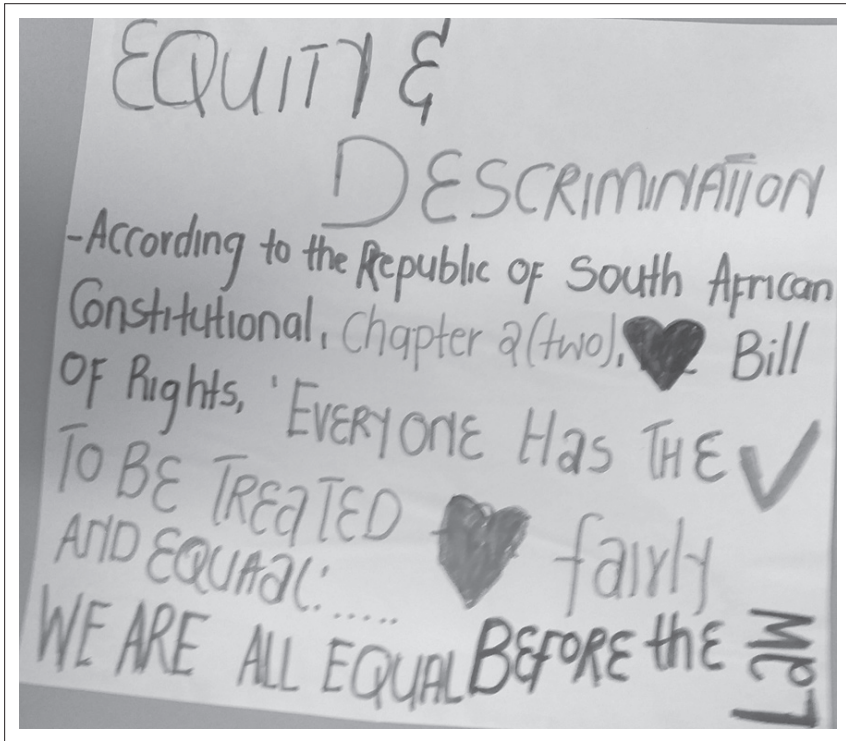 EQUITY &
DESCRIMINATION
-According to the Republic OF South African
Constitutional, Chapter 2(two), Bill
OF Rights, 'EVERYONE Has THE
TO BE TREaTED fairly
AND EQUAaL'.....
WE ARE ALL EQUAL BEFORE the LAW